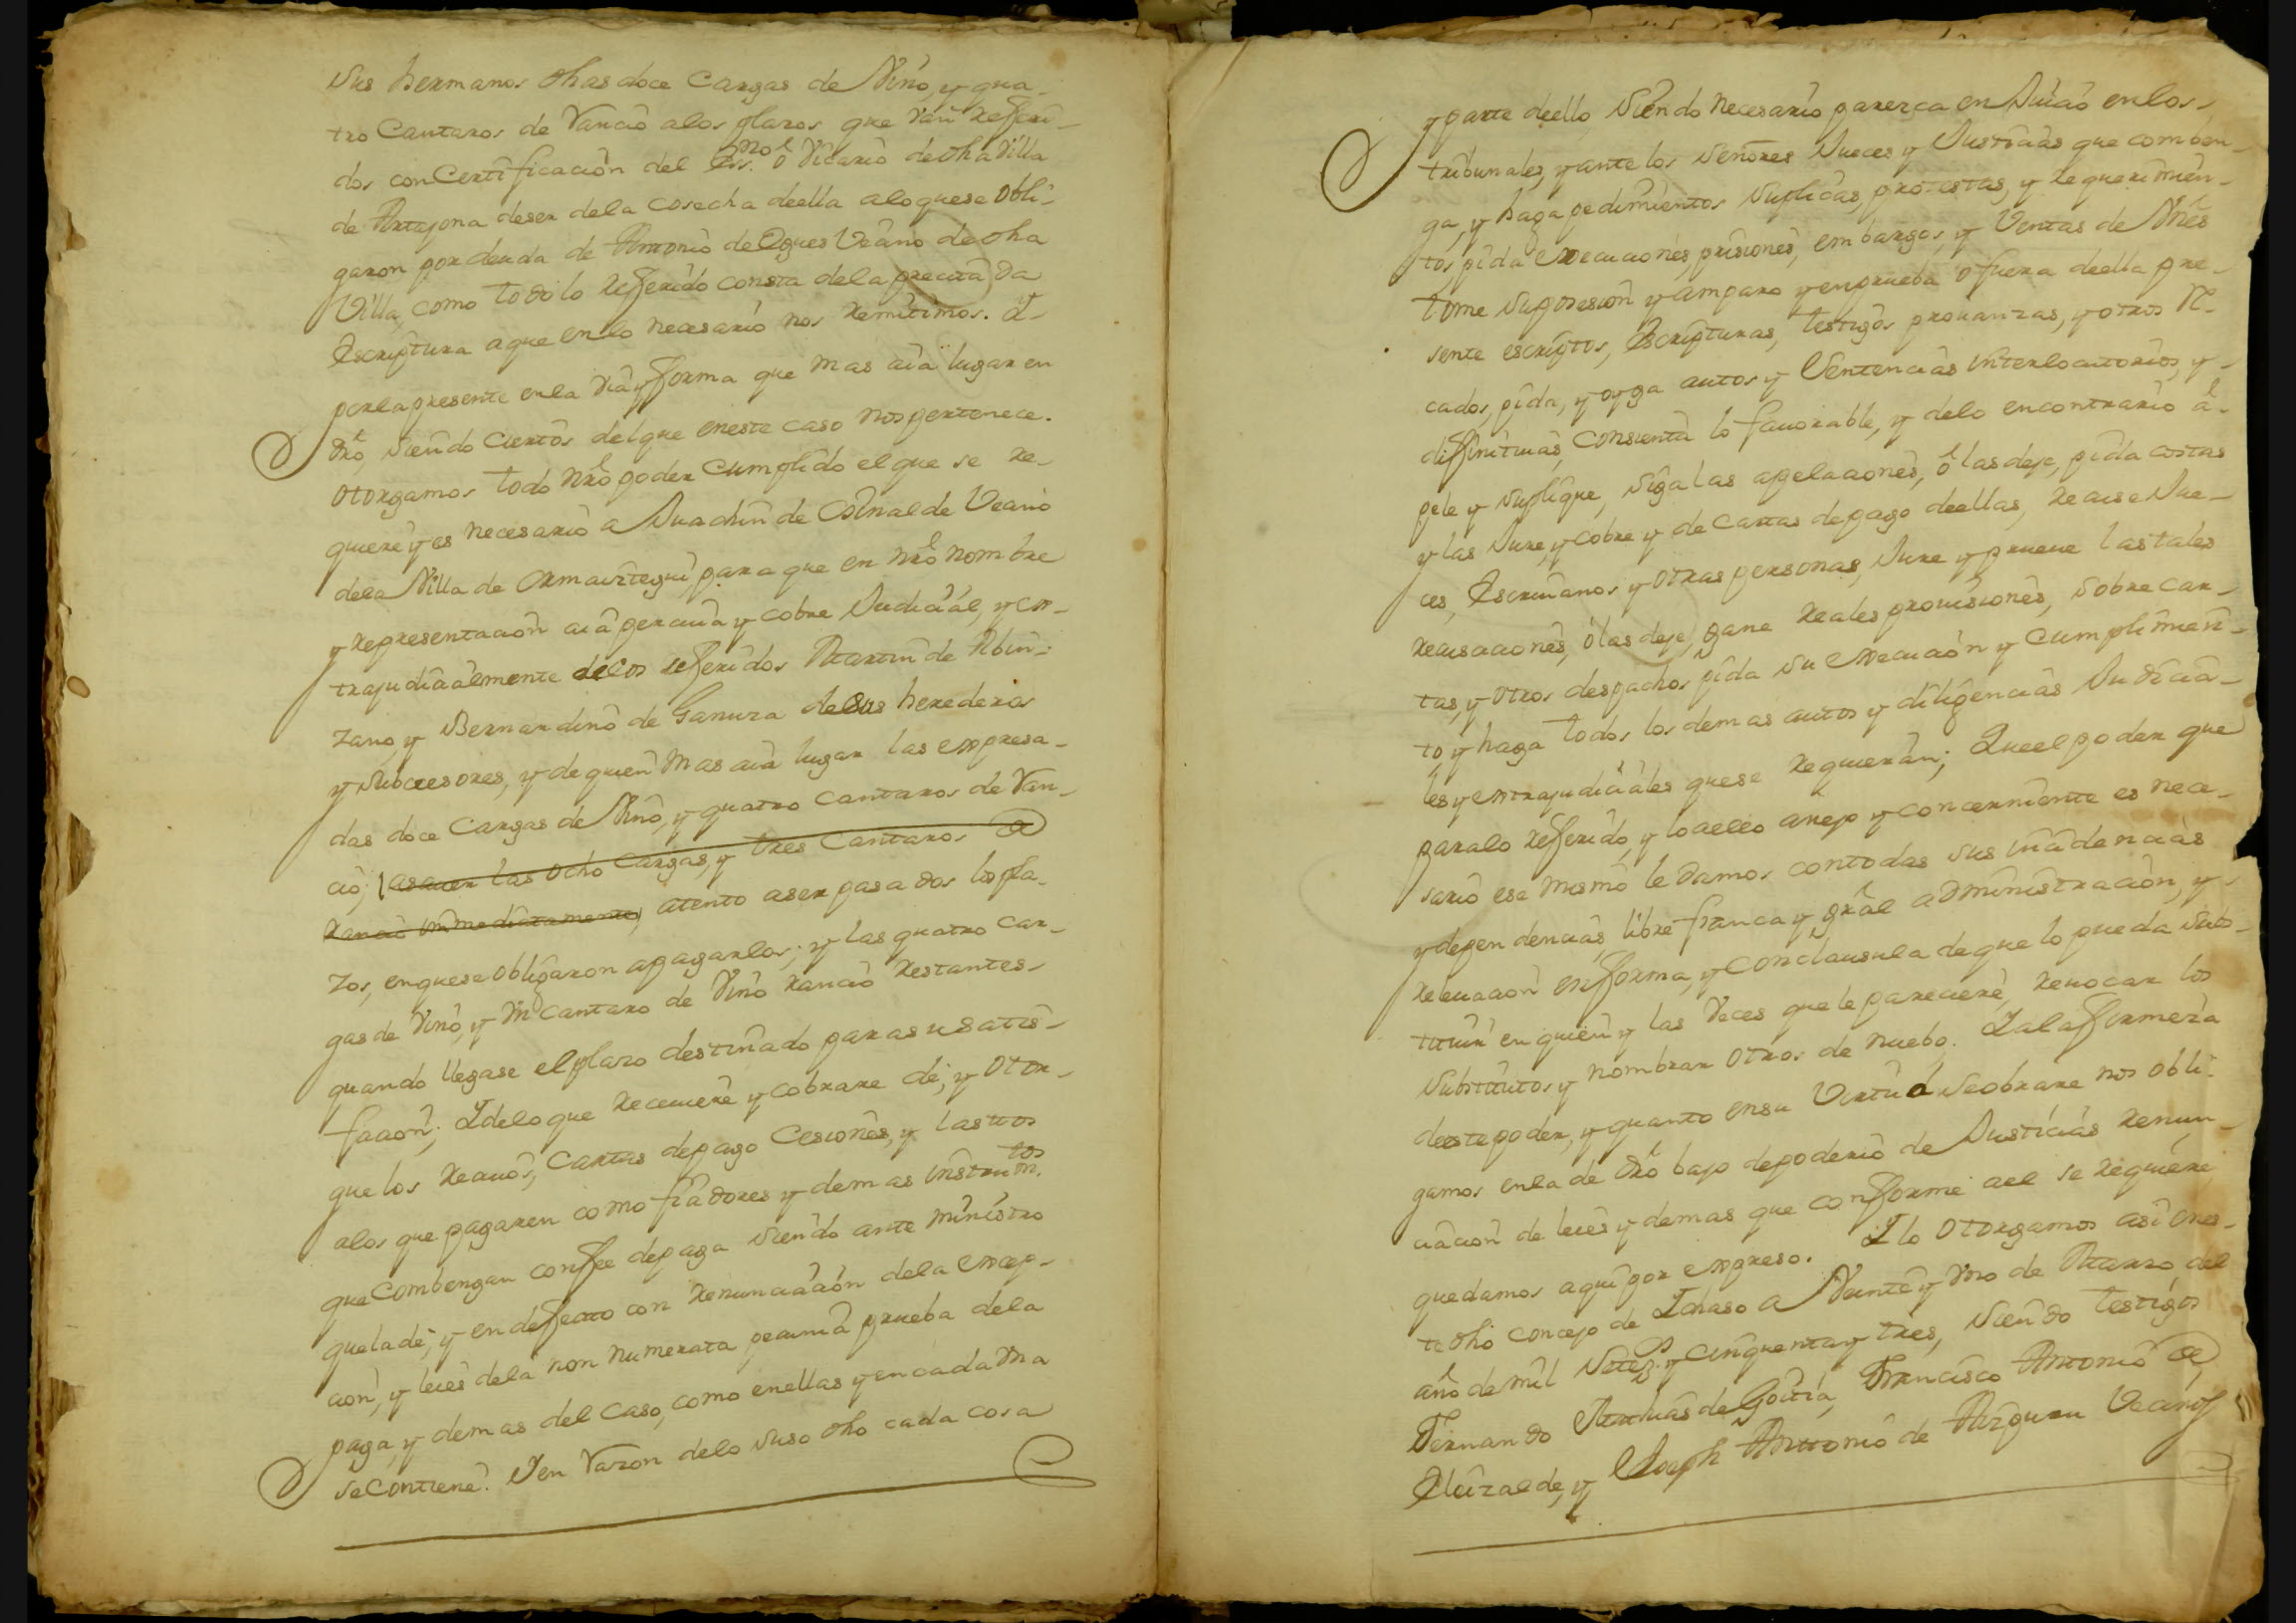 sus hermanos dhas doce Cargas de Vino, y qua-
tro Cantaros de Rancio a los plazos que van Referi-
dos con Certificacion del Essno. ô Vicario de dha Villa
de Artajona de ser de la cosecha de ella a lo que se obli-
garon por deuda de Antonio de Veano de dha
Villa, como todo lo Referido consta de la precitada
Escriptura a que en lo necesario nos Remitimos. I-
por la presente en la via y forma que mas aia lugar en
dro, siendo Ciertos del que en este caso nos pertenece.
otorgamos todo nro poder Cumplido el que se Re-
quiere y es necesario a Juachin de Veano
de la Villa de Ormaiztegui para que en nro nombre
y Representacion aia perciua y cobre Judicial, y ex-
trajudicialmente de los referidos Martin de
zano, y Bernardino de Ganuza de sus herederos
y Subcesores, y de quien mas aia lugar las expresa-
das doce Cargas de Vino, y quatro Cantaros de Ran-
cio, las ocho Cargas, y tres Cantaros
Rancio immediatamente, atento a ser pasados los pla-
zos, en que se obligaron a pagarlos; y las quatro Car-
gas de Vino, y Vn Cantaro de Vino Rancio Restantes
quando llegase el plazo destinado para su satis-
facion; I de lo que Receuiere y cobrare de, y otor-
gue los Reciuos, Cartas de pago Cesiones, y lastos
a los que pagaren como fiadores y demas instrumtos.
que Combengan con fee de paga siendo ante ministro
que la de, y en defecto con Renunciacion de la excep-
cion, y leies de la non numerata pecunia prueba de la
paga, y demas del Caso, como en ellas y en cada Vna
se Contiene. I en Razon de lo suso dho cada cosa
y parte de ello siendo necesario parezca en Juicio en los
tribunales, y ante los Señores Jueces y Justicias que comben-
ga, y haga pedimientos Suplicas, protestas, y Requerimien-
tos, pida execuciones, prisiones, embargos, y Ventas de Vnes
tome su posesion y amparo y en prueba o fuera de ella pre-
sente escriptos, Escripturas, testigos prouanzas, y otros Re-
cados, pida, y oyga autos y Sentencias interlocutorios, y
diffinitiuas, Consienta lo fauorable, y de lo en contrario â
pele y Suplique, siga las apelaciones, ô las deje, pida costas
y las Jure, y cobre y de Cartas de pago de ellas, Recuse Jue-
ces, Escriuanos y otras personas, Jure y prueue las tales
Recusaciones, ô las deje, gane Reales prouisiones, sobre car-
tas, y otros despachos pida su execucion y cumplimien-
to, y haga todos los demas autos y diligencias Judicia-
les y extrajudiciales que se Requieran; Que el poder que
para lo Referido, y lo a ello anejo y concerniente es nece-
sario ese mismo le damos con todas sus incidencias
y dependencias, libre franca y gral administracion, y-
Releuacion en forma, y con clausula de que lo pueda subs-
tituir en quien y las Veces que le pareciere, Reuocar los
Substitutos y nombrar otros de nuebo. I a la firmeza
de este poder, y quanto en su Virtud se obrare nos obli-
gamos en la de dro bajo de poderio de Justicias Renun-
ciacion de leies y demas que conforme a el se Requiere
que damos aqui por expreso. I lo otorgamos asi en es-
te dho concejo de Ichaso a Veinte y Vno de Marzo del
año de mil Setezs. y cinquenta y tres, siendo testigos
Fernando Mathias de Goitia, Francisco Antonio de
Elizalde, y Joseph Antonio de Aizguru Vecinos